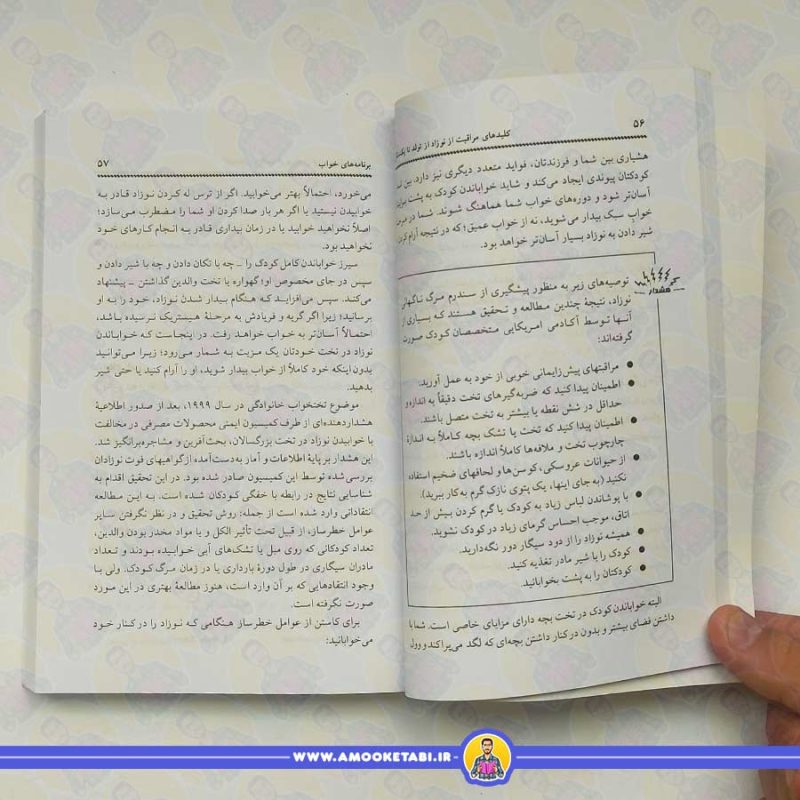 ۵۶
کلیدهای مراقبت از نوزاد از تولد تا یک
هشیاری بین شما و فرزندتان، فواید متعدد دیگری نیز دارد. بین
کودکتان پیوندی ایجاد می‌کند و شاید خواباندن کودک به پشت
آسان‌تر شود و دوره‌های خواب شما هماهنگ شوند. شما در
خواب سبک بیدار می‌شوید، نه از خواب عمیق؛ که در نتیجه آرام
شیر دادن به نوزاد بسیار آسان‌تر خواهد بود.
هشدار
توصیه‌های زیر به منظور پیشگیری از سندرم مرگ ناگهانی
نوزاد، نتیجهٔ چندین مطالعه و تحقیق هستند که بسیاری از
آنها توسط آکادمی امریکایی متخصصان کودک صورت
گرفته‌اند:
● مراقبتهای پیش‌زایمانی خوبی از خود به عمل آورید.
● اطمینان پیدا کنید که ضربه‌گیرهای تخت دقیقاً به اندازه و
حداقل در شش نقطه یا بیشتر به تخت متصل باشند.
● اطمینان پیدا کنید که تخت یا تشک بچه کاملاً به اندازهٔ
چارچوب تخت و ملافه‌ها کاملاً اندازه باشند.
● از حیوانات عروسکی، کوسن‌ها و لحافهای ضخیم استفاده
نکنید (به جای اینها، یک پتوی نازک گرم به کار ببرید).
● با پوشاندن لباس زیاد به کودک یا گرم کردن بیش از حد
اتاق، موجب احساس گرمای زیاد در کودک نشوید.
● همیشه نوزاد را از دود سیگار دور نگه‌دارید.
● کودک را با شیر مادر تغذیه کنید.
● کودکتان را به پشت بخوابانید.
البته خواباندن کودک در تخت بچه دارای مزایای خاصی است. شما با
داشتن فضای بیشتر و بدون در کنار داشتن بچه‌ای که لگد می‌پراکند و وول
برنامه‌های خواب
۵۷
می‌خورد، احتمالاً بهتر می‌خوابید. اگر از ترس له کردن نوزاد قادر به
خوابیدن نیستید یا اگر هر بار صدا کردن او شما را مضطرب می‌سازد؛
اصلاً نخواهید خوابید یا در زمان بیداری قادر به انجام کارهای خود
نخواهید بود.
سیرز خواباندن کامل کودک را ـ چه با تکان دادن و چه با شیر دادن و
سپس در جای مخصوص او؛ گهواره یا تخت والدین گذاشتن ـ پیشنهاد
می‌کند. سپس می‌افزاید کـه هنگام بیدار شدن نوزاد، خود را به او
برسانید؛ زیرا اگر گریه و فریادش به مرحلهٔ هیستریک نرسیده باشد،
احتمالاً آسان‌تر به خواب خواهد رفت. در اینجاست که خواباندن
نوزاد در تخت خودتان یک مزیت به شمار می‌رود؛ زیرا می‌توانید
بدون اینکه خود کاملاً از خواب بیدار شوید، او را آرام کنید یا حتی شیر
بدهید.
موضوع تختخواب خانوادگی در سال ۱۹۹۹، بعد از صدور اطلاعیهٔ
هشداردهنده‌ای از طرف کمیسیون ایمنی محصولات مصرفی در مخالفت
با خوابیدن نوزاد در تخت بزرگسالان، بحث‌آفرین و مشاجره‌برانگیز شد.
این هشدار بر پایهٔ اطلاعات و آمار به‌دست‌آمده از گواهیهای فوت نوزادان
بررسی‌شده توسط این کمیسیون صادر شده بود. در این تحقیق اقدام به
شناسایی نتایج در رابطه با خفگی کودکان شده است. به این مطالعه
انتقاداتی وارد شده است از جمله: روش تحقیق و در نظر نگرفتن سایر
عوامل خطرساز، از قبیل تحت تأثیر الکل و یا مواد مخدر بودن والدین،
تعداد کودکانی که روی مبل یا تشک‌های آبی خوابیده بودند و تعداد
مادران سیگاری در طول دورهٔ بارداری یا در زمان مرگ کودک. ولی با
وجود انتقادهایی که بر آن وارد است، هنوز مطالعهٔ بهتری در این مورد
صورت نگرفته است.
برای کاستن از عوامل خطرساز هنگامی که نوزاد را در کنار خود
می‌خوابانید:
WWW.AMOOKETABI.IR